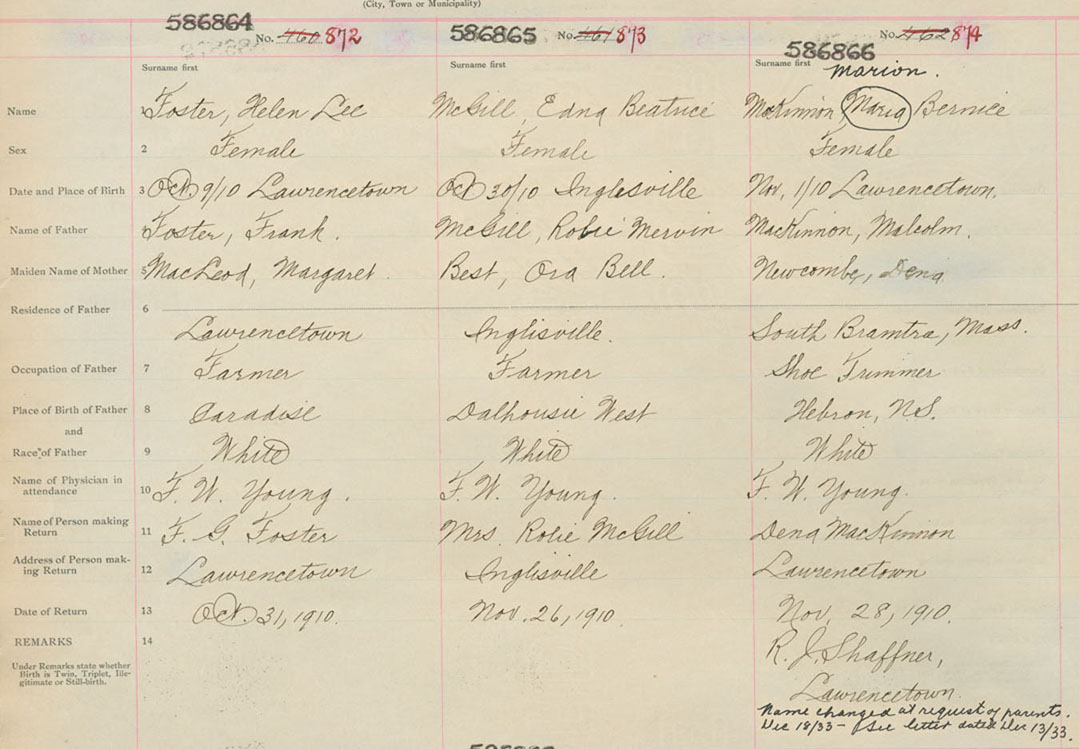 (City, Town or Municipality)
586864 No. 460 872 586865 No. 461 873 586866 No. 462 874
Surname first Surname first Surname first Marion.
Name 1 Foster, Helen Lee McGill, Edna Beatrice MacKinnon, Maria Bernice
Sex 2 Female Female Female
Date and Place of Birth 3 Oct 9/10 Lawrencetown Oct 30/10 Inglesville Nov, 1/10 Lawrencetown.
Name of Father 4 Foster, Frank. McGill, Robie Mervin MacKinnon, Malcolm.
Maiden Name of Mother 5 MacLeod, Margaret Best, Ora Bell. Newcombe, Dena
Residence of Father 6
Lawrencetown Inglisville. South Bramtra, Mass.
Occupation of Father 7 Farmer Farmer Shoe Trimmer
Place of Birth of Father 8 Paradise Dalhousie West Hebron, N.S.
and
Race of Father 9 White White White
Name of Physician in
attendance 10 F. W. Young. F. W. Young. F. W. Young.
Name of Person making
Return 11 F. G. Foster Mrs. Robie McGill Dena MacKinnon
Address of Person mak-
ing Return 12 Lawrencetown Inglisville Lawrencetown
Date of Return 13 Oct. 31, 1910. Nov. 26, 1910 Nov, 28, 1910.
REMARKS 14 R. J. Shaffner,
Under Remarks state whether
Birth is Twin, Triplet, Ille-
gitimate or Still-birth.
Lawrencetown.
Name changed at request of parents.
Dec 18/33 - See letter dated Dec 13/33.